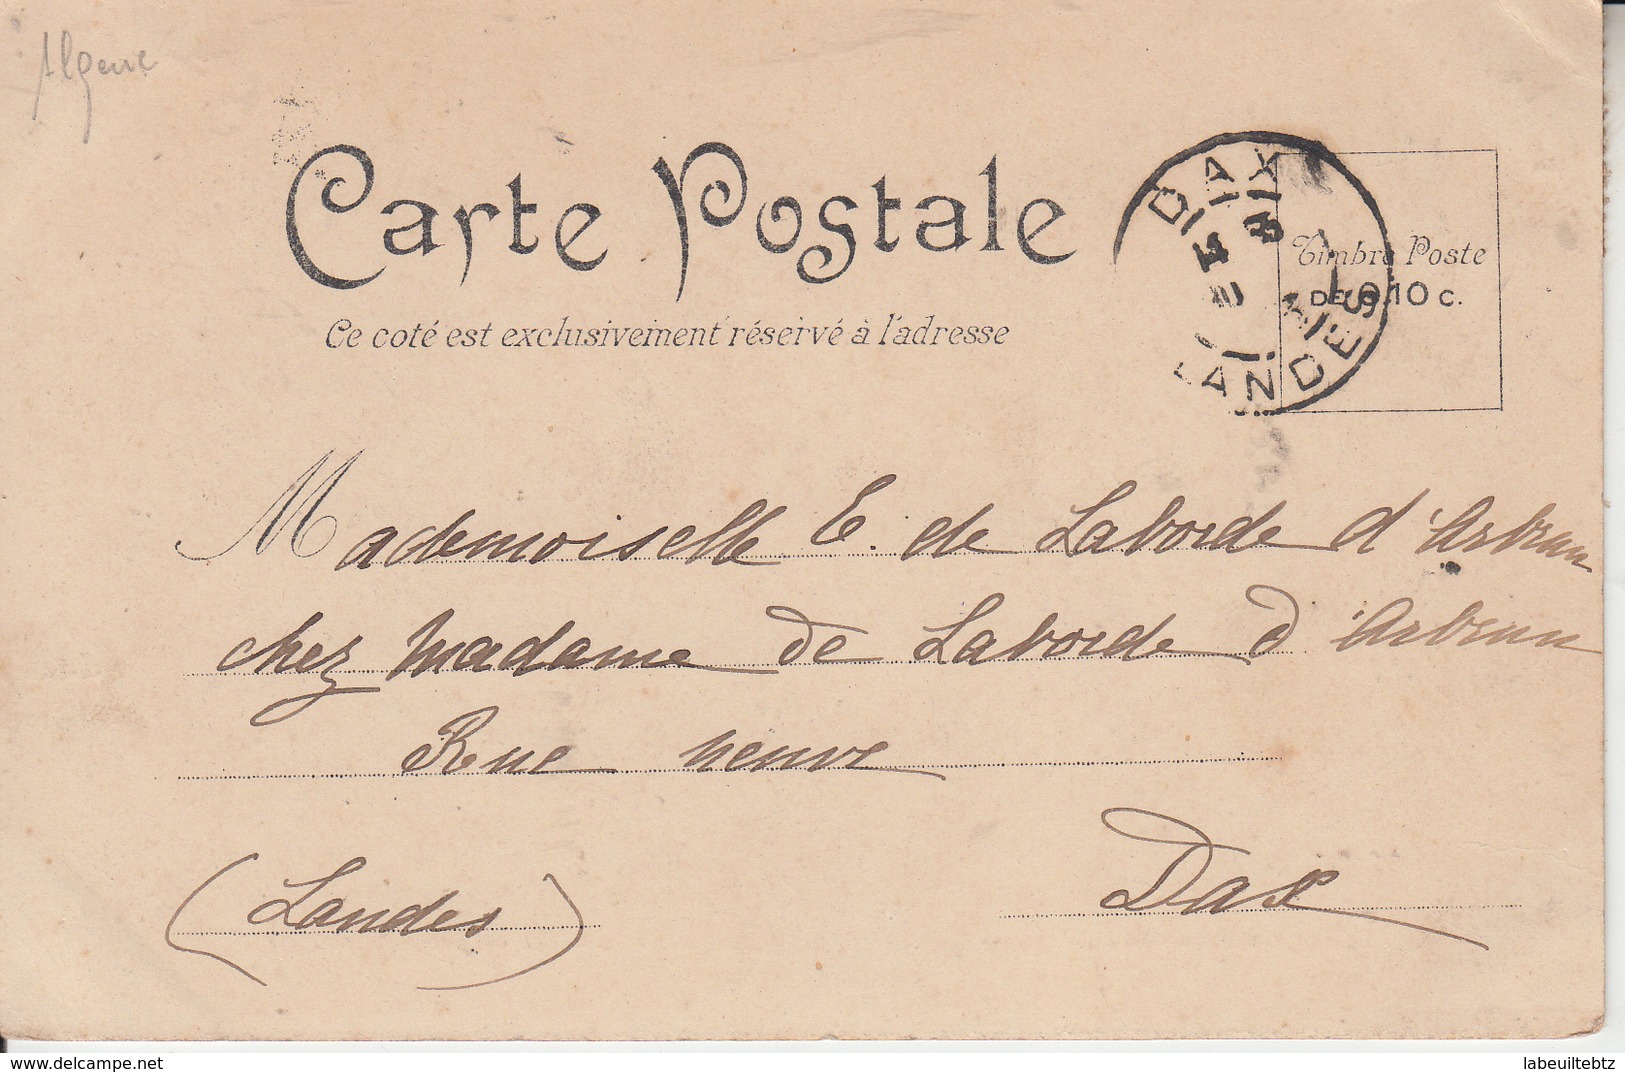 Algerie
Carte Postale
Ce coté est exclusivement réservé à l'adresse
DAX
LANDES
Timbre Poste
DE 0,10 C.
Mademoiselle E. de Laborde d'Arbrun
chez Madame de Laborde d'Arbrun
Rue neuve
Dax
(Landes)
Delcampe.net
labeuiltebtz